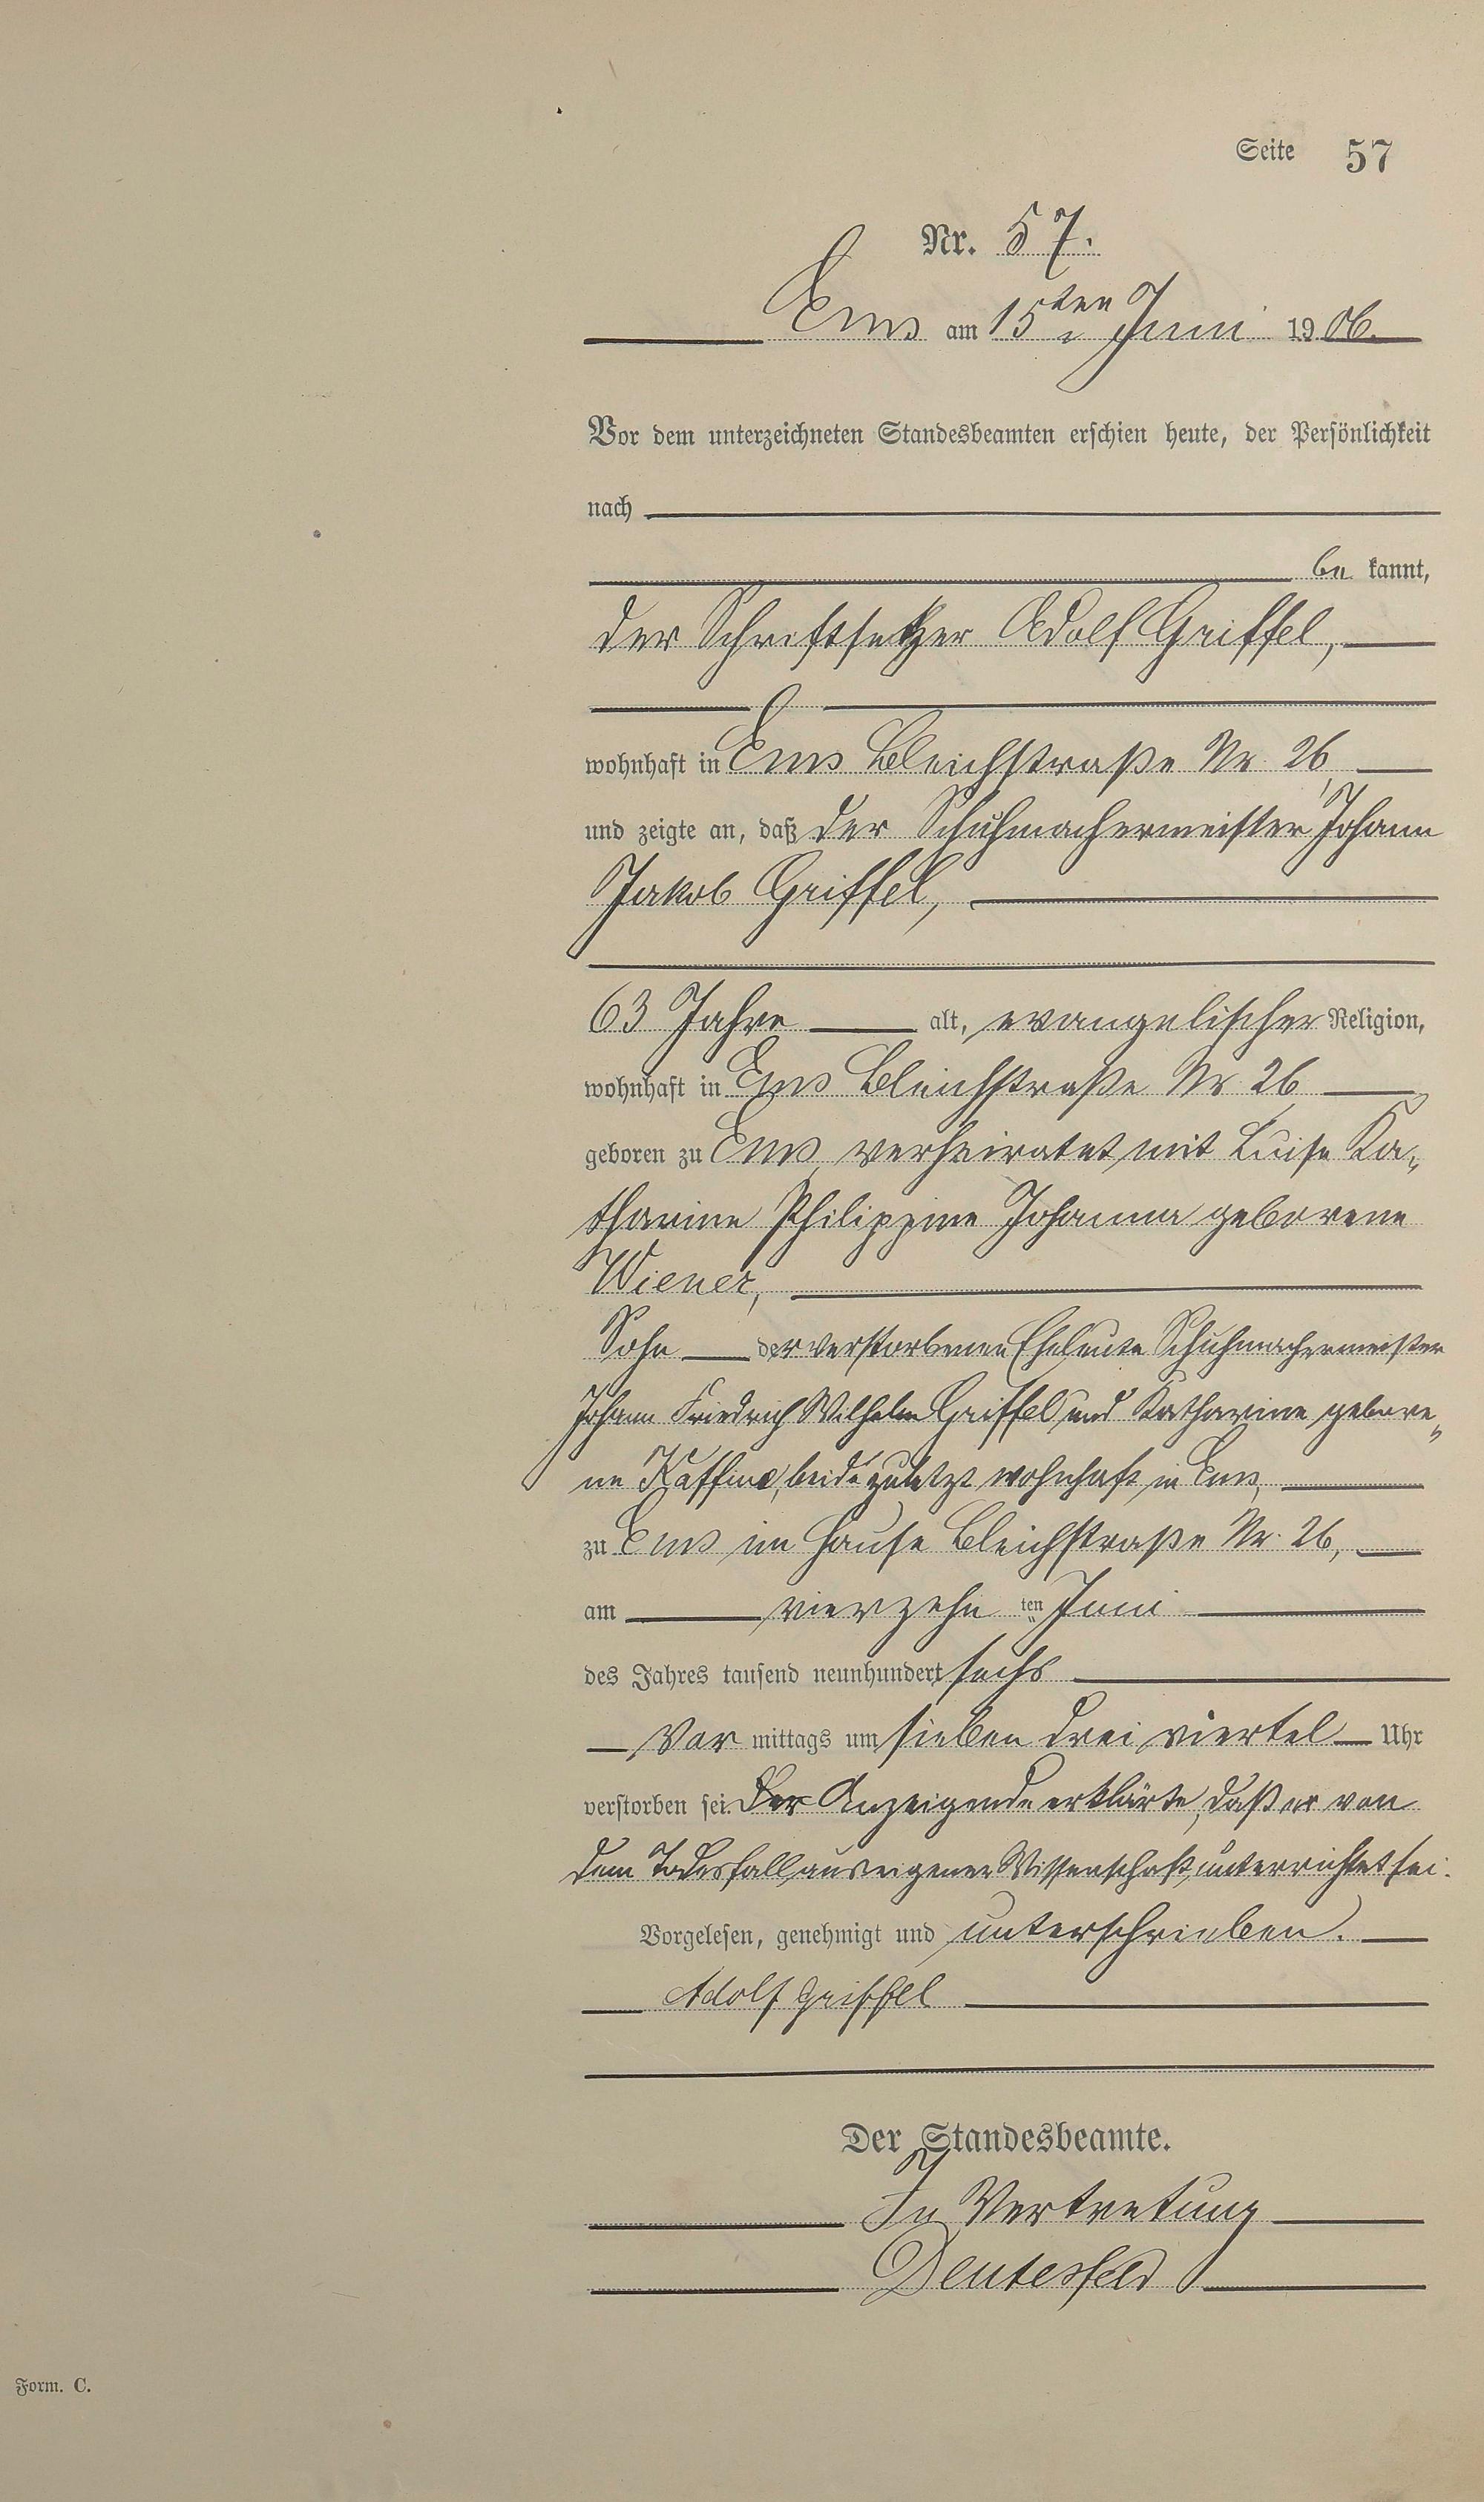 Seite 57
Nr. 57.
Ems am 15ten Juni 1906.
Vor dem unterzeichneten Standesbeamten erschien heute, der Persönlichkeit
nach
be kannt,
der Schriftsetzer Adolf Griffel,
wohnhaft in Ems Bleichstraße Nr. 26,
und zeigte an, daß der Schuhmachermeister Johann
Jakob Griffel,
63 Jahre alt, evangelischer Religion,
wohnhaft in Ems Bleichstraße Nr. 26,
geboren zu Ems, verheiratet mit Luise Ka-
tharine Philippine Johanna geborene
Wiener,
Sohn der verstorbenen Eheleute Schuhmachermeister
Johann Friedrich Wilhelm Griffel und Katharine gebore-
ne, beide zuletzt wohnhaft in Ems,
zu Ems im Hause Bleichstraße Nr. 26,
am vierzehn ten Juni
des Jahres tausend neunhundert sechs
Vor mittags um sieben drei viertel Uhr
verstorben sei. Der Anzeigende erklärte, daß er von
dem Todesfall aus eigener Wissenschaft unterrichtet sei.
Vorgelesen, genehmigt und unterschrieben.
Adolf Griffel
Der Standesbeamte.
In Vertretung
Form. C.